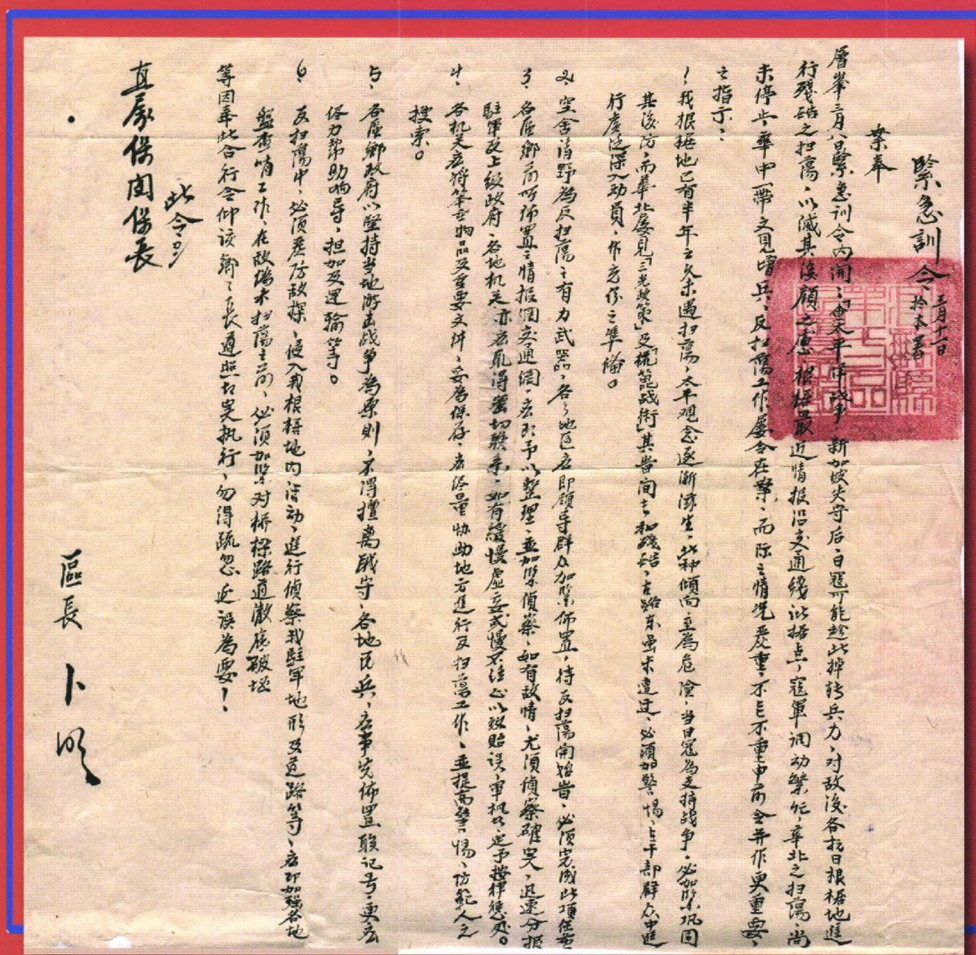 緊急訓令
三月十一日
於本署
案奉
層峯三月八日緊急訓令內開：「會太平洋战爭，新加坡失守后，日寇可能趁此掉轉兵力，对敌後各抗日根据地進
行殘酷之扫蕩，以減其後顧之慮，根据最近情报沿交通綫诸据点，寇軍調动繁忙，華北之扫蕩，尚
未停止，華中一帶又見增兵，反扫蕩工作屡令在案，而际此情况严重，不得不重申前令并作更重要
之指示：
1、我根据地已有半年之久未遇扫蕩，太平观念逐漸滋生，此种傾向至為危險，当日寇為支持战爭，必加緊巩固
其後防，而華北屡見「三光政策」及「梳篦战術」其普间之和殘酷，吾路东虽未遭过，必須加緊警惕，在干部群众中進
行廣泛深入动員，作充份之準備。
2、空舍清野為反扫蕩之有力武器，各地区应即領导群众加緊佈置，待反扫蕩開始时，必須完成此項任務
3、各区鄉前所佈置之情报網交通網，应即予以整理，並加緊偵察，如有敌情，尤須偵察確实，迅速分报
駐軍及上級政府，各地机关亦应取得密切联系，如有緩慢虛妄或慢不经心以致貽误軍机者，定予按律懲处。
4、各机关应将笨重物品及重要文件，妥為保存，应尽量协助地方進行反扫蕩工作，並提高警惕，防範人之
搜索。
5、各区鄉政府以堅持当地游击战爭為原則，不得擅离职守，各地民兵，应事先佈置联记号，更应
尽力帮助响导，担加及運输等。
6、反扫蕩中，必須严防敌探，侵入我根据地内活动，進行偵察我駐軍地形及道路等，应即加强各地
盤查哨工作，在敌偽未扫蕩之前，必須加緊对桥樑路道徹底破坏
等因奉此合行令仰该鄉長遵照切实执行，勿得疏忽近误為要！
此令。
直属保周保長
區長 卜明